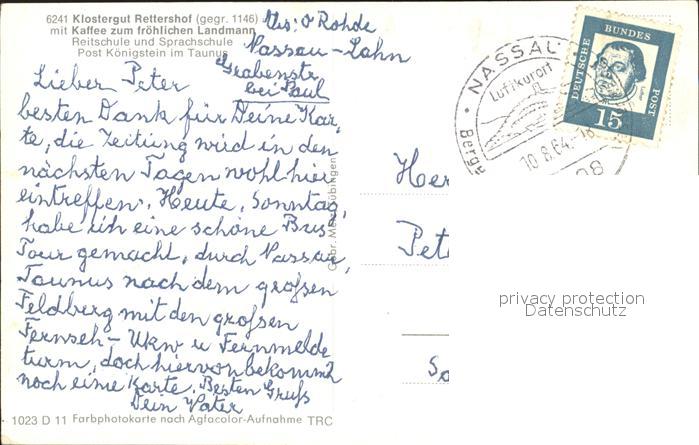 6241 Klostergut Rettershof (gegr. 1146)
mit Kaffee zum fröhlichen Landmann
Reitschule und Sprachschule
Post Königstein im Taunus
Rohde
Nassau-Lahn
Grabenstr.
bei Paul
Lieber Peter
besten Dank für Deine Kar
te, die Zeitung wird in den
nächsten Tagen wohl hier
eintreffen. Heute, Sonntag,
habe ich eine schöne Bus
Tour gemacht, durch Nassau,
Taunus nach dem großen
Feldberg mit den großen
Fernseh- Ukw u Fernmelde
turm, doch hiervon bekommst
noch eine Karte. Besten Gruß
Dein Vater
1023 D 11 Farbphotokarte nach Agfacolor-Aufnahme TRC
Tübingen
NASSAU
Luftkurort
10.8.64.-18
DEUTSCHE BUNDES POST
15
Her
Pet
So
privacy protection
Datenschutz